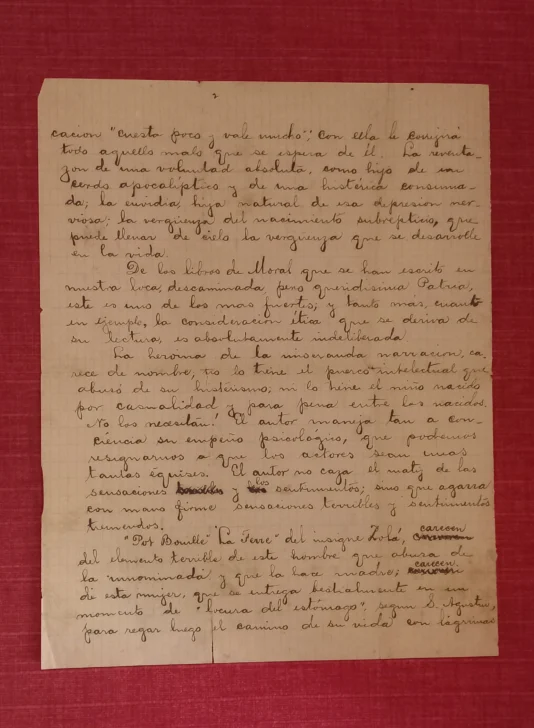 2
cacion "cuesta poco y vale mucho"; con ella le
todo aquello malo que se espera de él. La reventa-
zon de una voluntad absoluta, como hijo de un
cerdo apocaliptico y de una histérica consuma-
da; la envidia, hija natural de esa depresion ner-
viosa; la vergüenza del nacimiento subrepticio, que
puede llenar de cielo la vergüenza que se desarrolle
en la vida.
De los libros de Moral que se han escrito en
nuestra loca, descaminada pero queridisima Patria,
este es uno de los mas fuertes; y tanto más, cuanto
en ejemplo, la consideracion ética que se deriva de
su lectura, es absolutamente indeliberada
La heroina de la miseranda narracion, ca.
rece de nombre, no lo tiene el puerco intelectual que
abusó de su histerismo; ni lo tiene el niño nacido
por casualidad y para pena entre los nacidos.
¡No los necesitan! El autor maneja tan a con-
ciencia su empeño psicológico, que podemos
resignarnos a que los actores sean unas
tantas équises. El autor no caza el matiz de las
sensaciones y los sentimientos; sino que agarra
con mano firme sensaciones terribles y sentimientos
tremendos.
"Pot Bouille" "La Terre" del insigne Zolá, carecen
del elemento terrible de este hombre que abusa de
la 'innominada' y que la hace madre; carecen
de esta mujer, que se entrega bestialmente en un
momento de "locura del estómago", segun S. Agustin,
para regar luego el camino de su vida con lágrimas